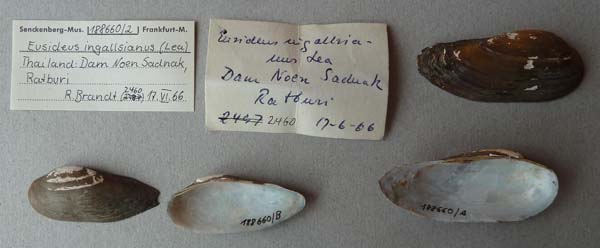 Senckenberg-Mus. 188660/2 Frankfurt-M.
Eusideus ingallsianus (Lea)
Thailand: Dam Noen Sadnak,
Ratburi
2460
R. Brandt (2497) 17.VI.66
Eusideus ingallsia-
nus Lea
Dam Noen Sadnak
Ratburi
2497 2460 17-6-66
188660/B
188660/A